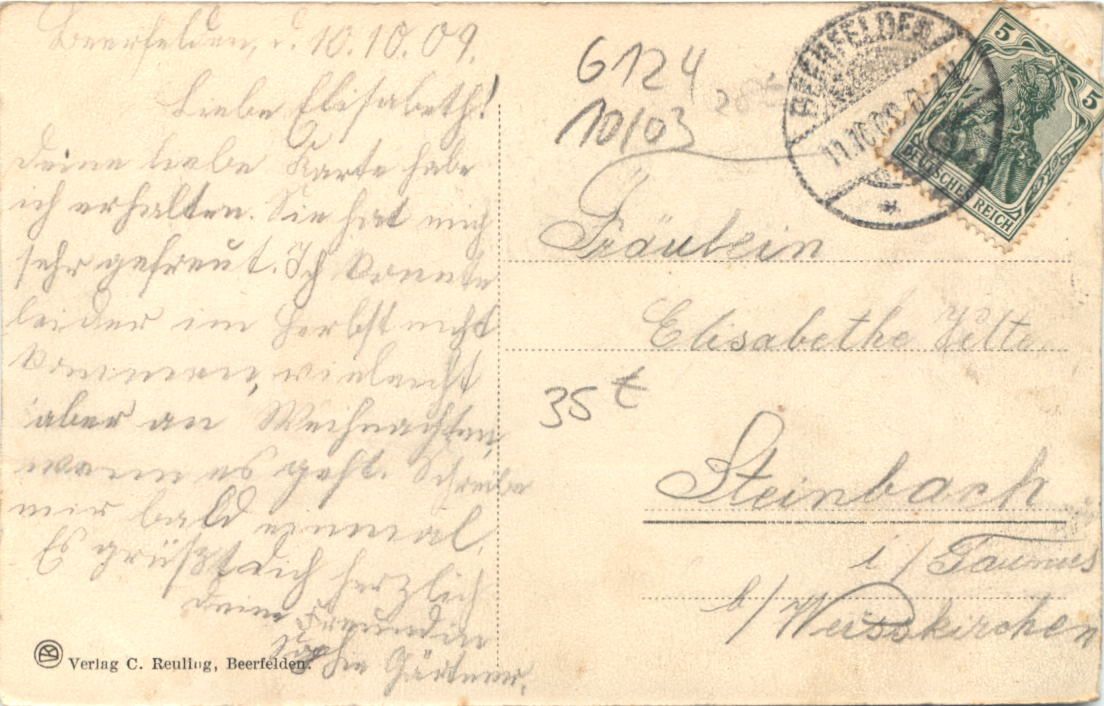 Beerfelden, d. 10.10.09.
Liebe Elisabeth!
Deine liebe Karte habe
ich erhalten. Sie hat mich
sehr gefreut. Ich konnte
leider im Herbst nicht
kommen, vieleicht
aber an Weihnachten,
wenn es geht. Schreibe
mir bald einmal.
Es grüßt dich herzlich
deine Freundin
Sophie Gärtner.
Verlag C. Reuling, Beerfelden.
6124
10/03
BEERFELDEN
11.10.09
5
5
DEUTSCHES REICH
Fräulein
Elisabethe
35 t
Steinbach
i/Taunus
b/Weisskirchen